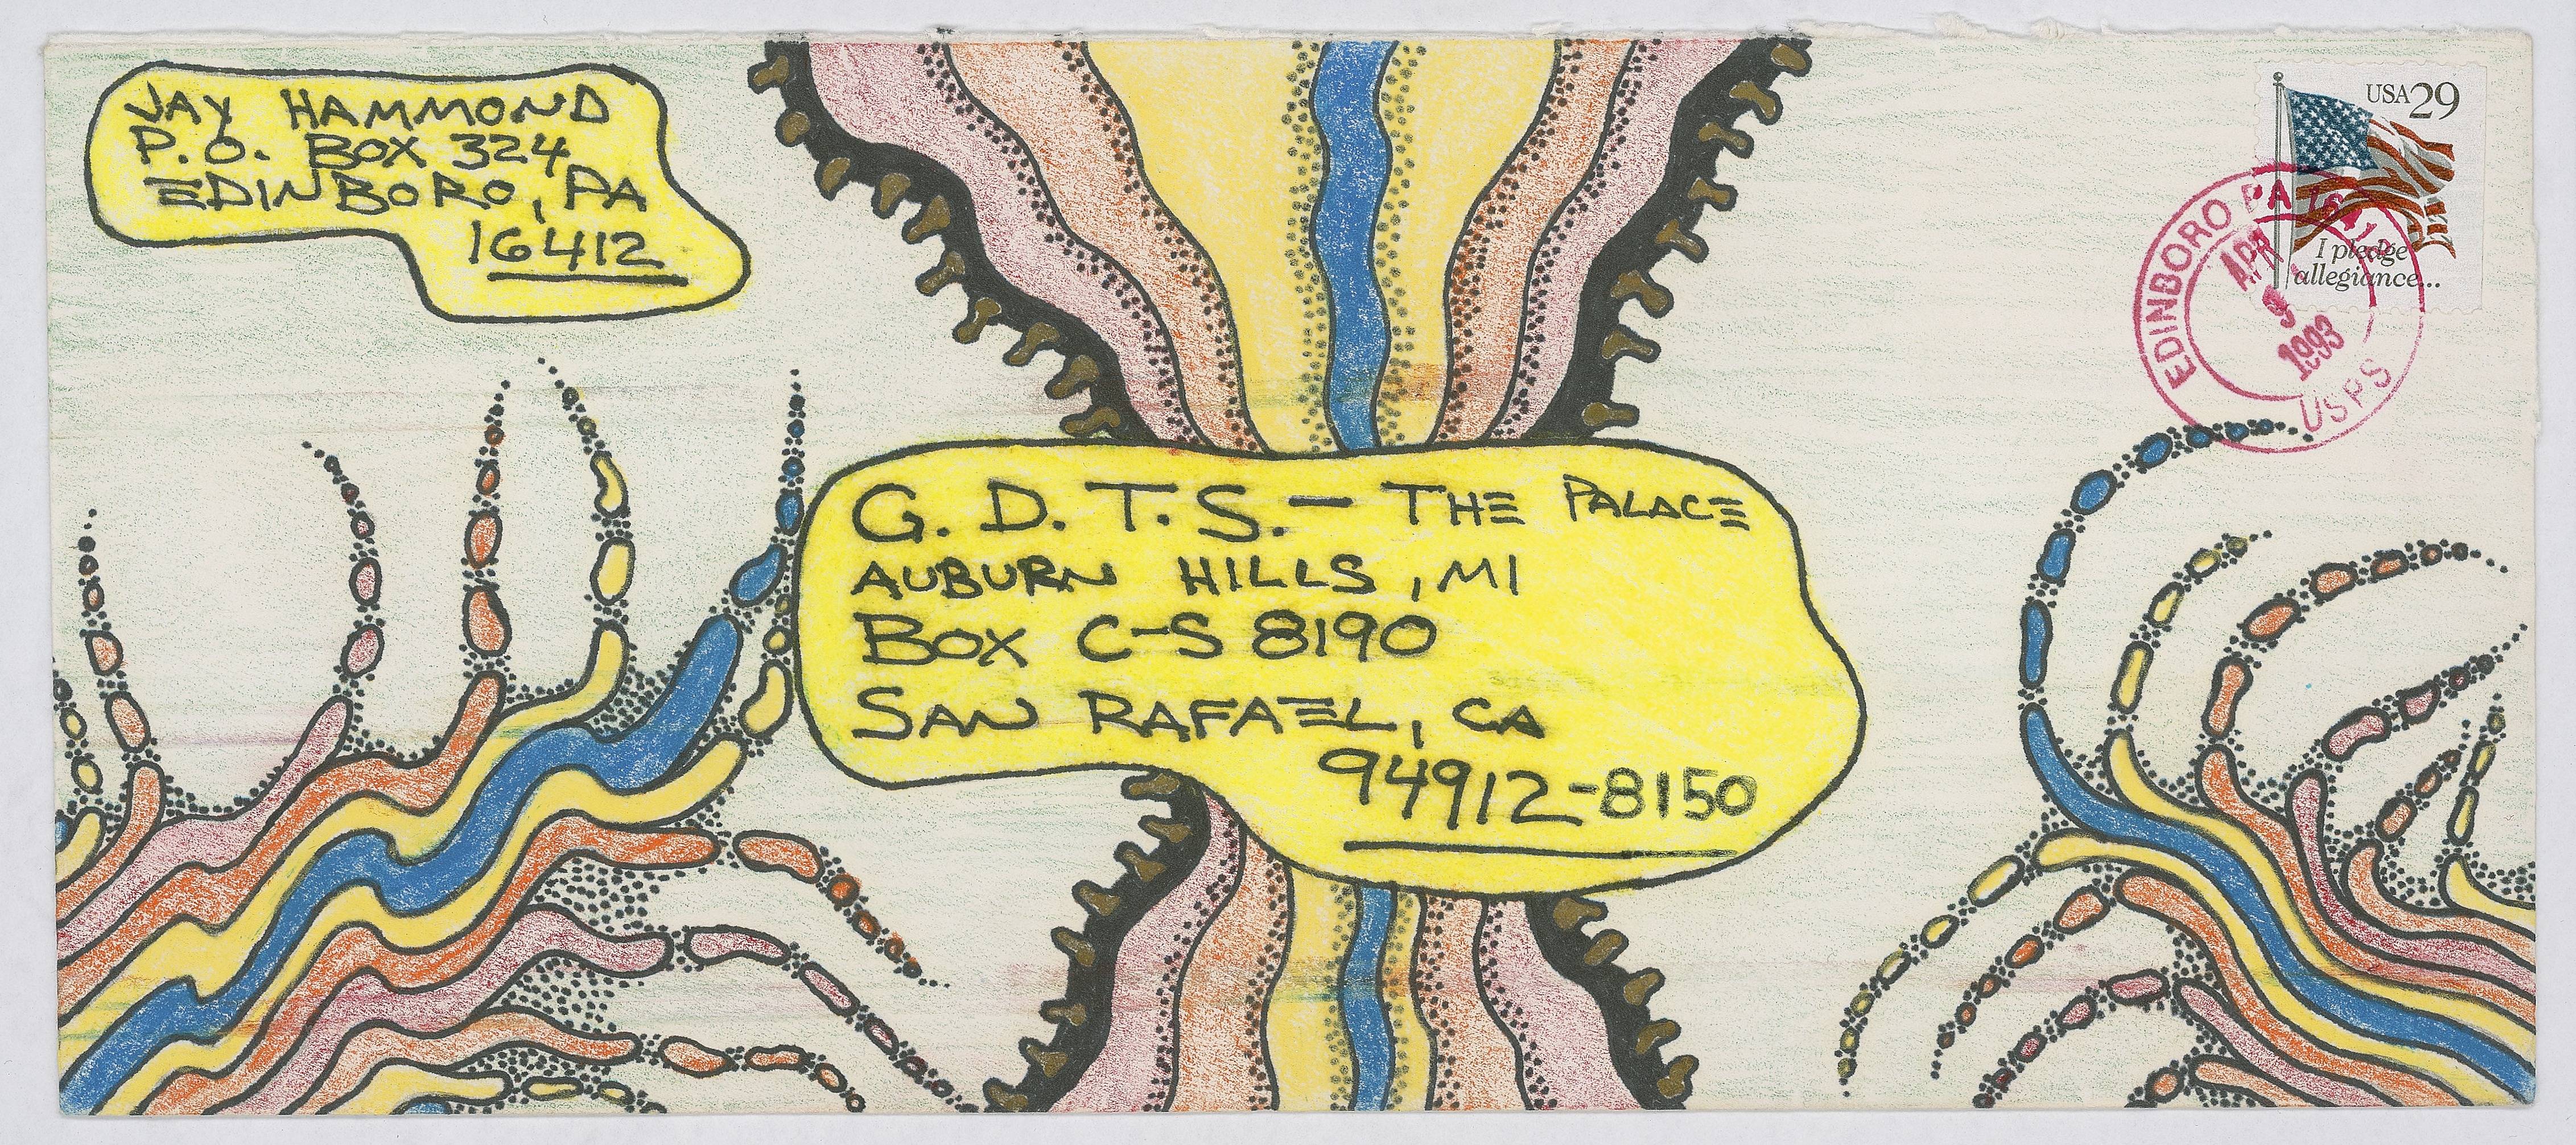 JAY HAMMOND
P.O. BOX 324
EDINBORO, PA
16412
USA 29
I pledge
allegiance...
EDINBORO PA 16412
APR
9
1993
USPS
G. D. T. S. - THE PALACE
AUBURN HILLS, MI
BOX C-S 8190
SAN RAFAEL, CA
94912-8150